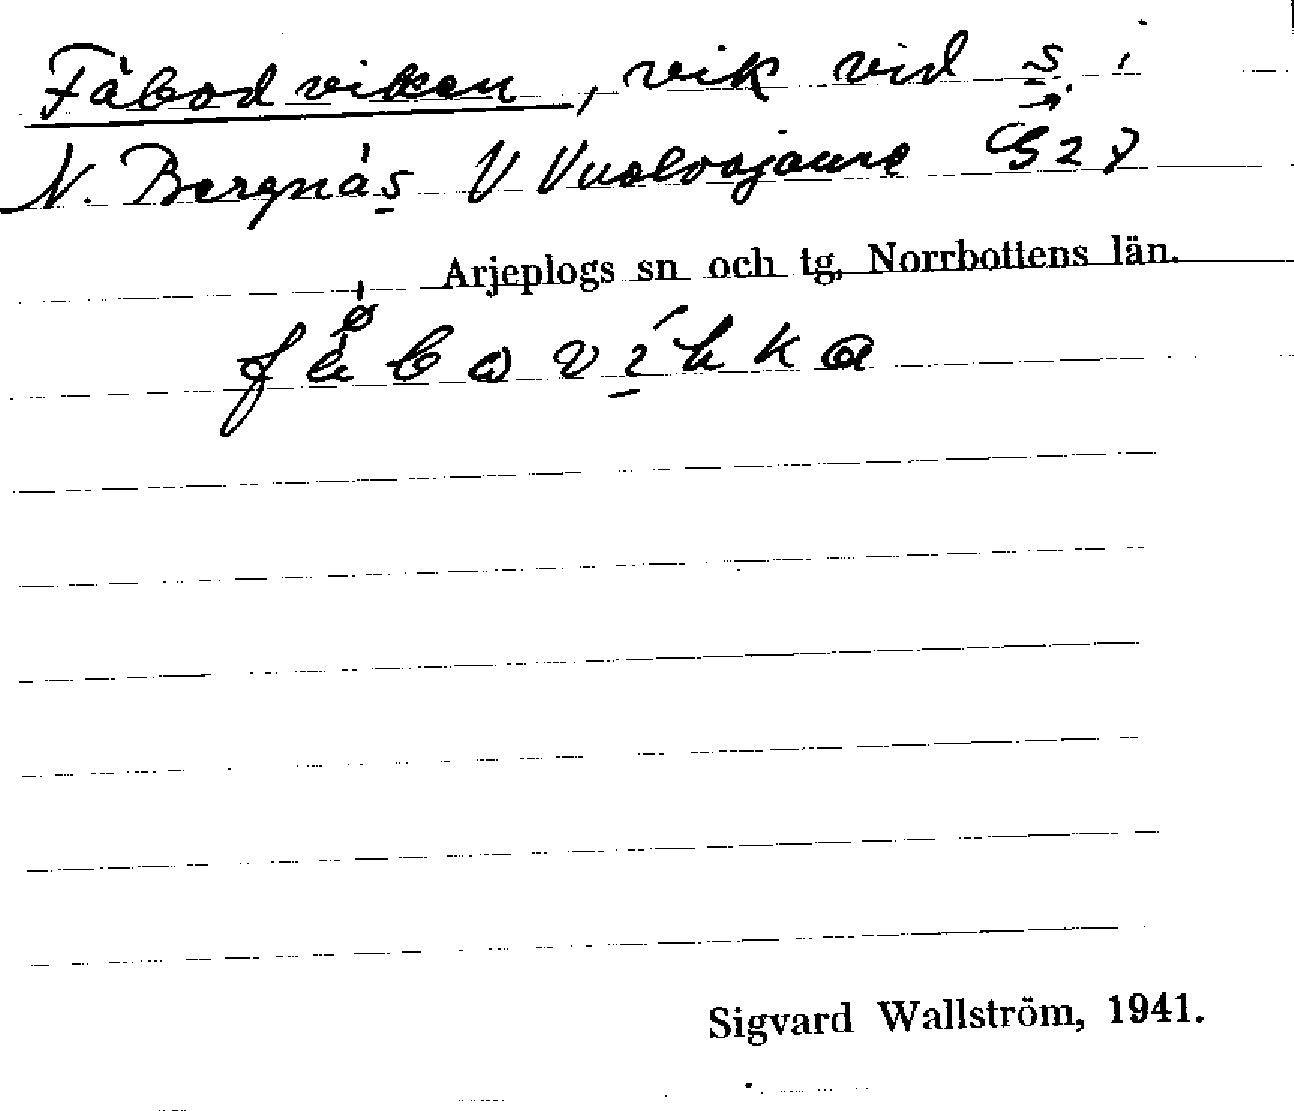 Fäbodviken, vik vid s. i
N. Bergnäs V Vuolvojaure G27
Arjeplogs sn och tg, Norrbottens län.
Sigvard Wallström, 1941.